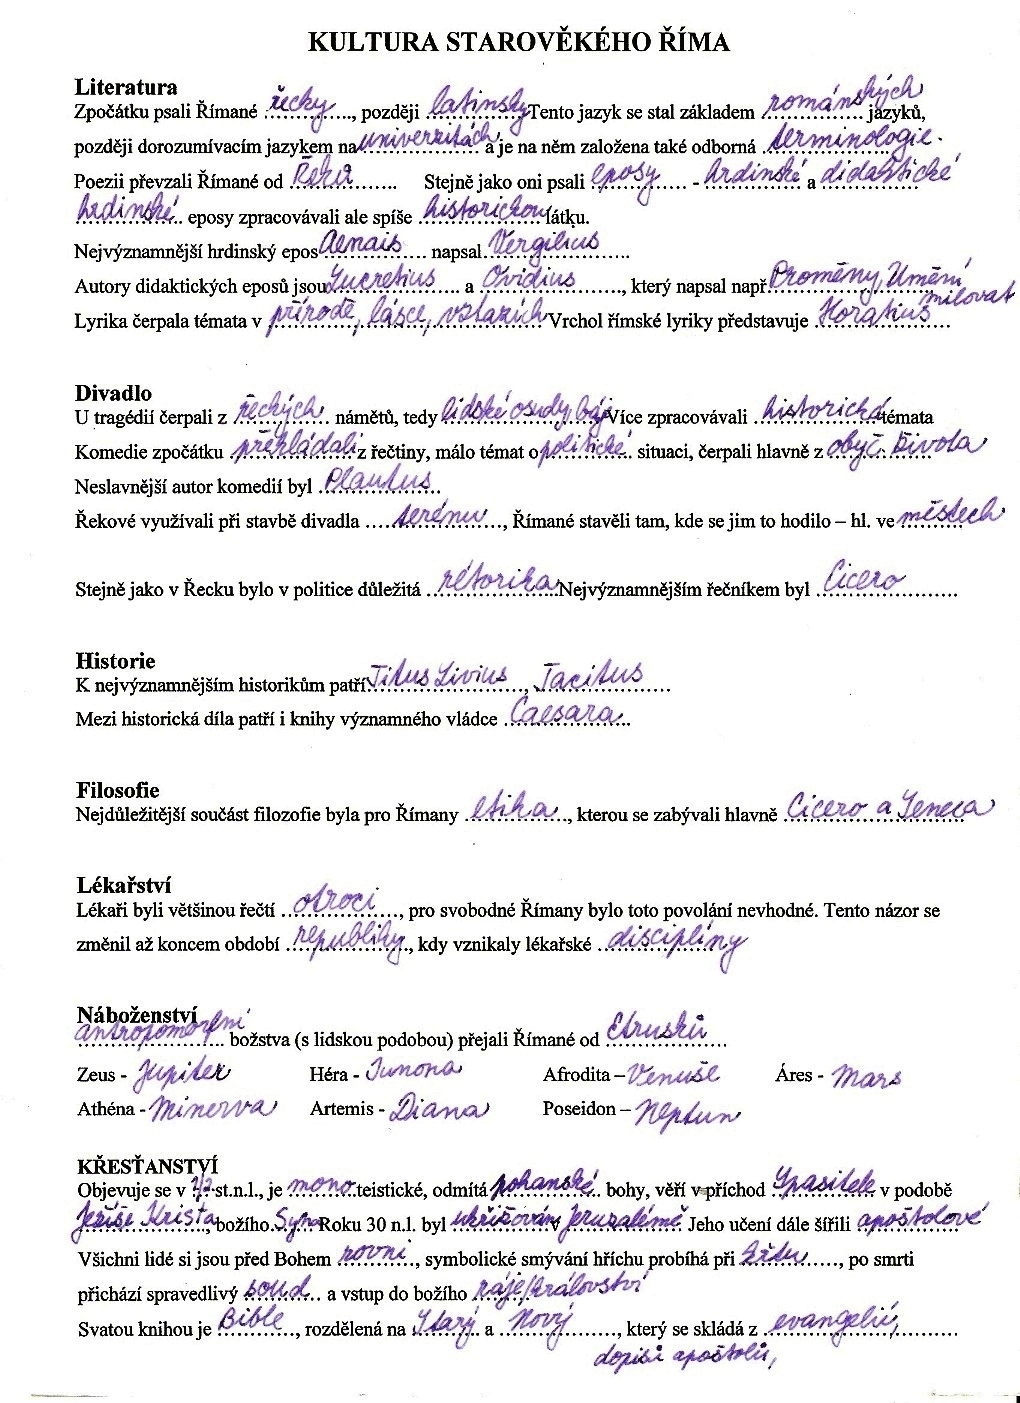 KULTURA STAROVĚKÉHO ŘÍMA
Literatura
Zpočátku psali Římané řecky, později latinsky Tento jazyk se stal základem románských jazyků,
později dorozumívacím jazykem na univerzitách a je na něm založena také odborná terminologie.
Poezii převzali Římané od Řeků Stejně jako oni psali eposy - hrdinské a didaktické
hrdinské eposy zpracovávali ale spíše historickou látku.
Nejvýznamnější hrdinský epos Aenais napsal Vergilius
Autory didaktických eposů jsou Lucretius a Ovidius, který napsal např. Proměny, Umění milovat
Lyrika čerpala témata v přírodě, lásce, vztazích Vrchol římské lyriky představuje Horatius
Divadlo
U tragédií čerpali z řeckých námětů, tedy lidské osudy, báje Více zpracovávali historická témata
Komedie zpočátku překládali z řečtiny, málo témat o politické situaci, čerpali hlavně z obyč. života
Neslavnější autor komedií byl Plautus
Řekové využívali při stavbě divadla terénu, Římané stavěli tam, kde se jim to hodilo – hl. ve městech
Stejně jako v Řecku bylo v politice důležitá rétorika Nejvýznamnějším řečníkem byl Cicero
Historie
K nejvýznamnějším historikům patří Titus Livius, Tacitus
Mezi historická díla patří i knihy významného vládce Caesara
Filosofie
Nejdůležitější součást filozofie byla pro Římany etika, kterou se zabývali hlavně Cicero a Seneca
Lékařství
Lékaři byli většinou řečtí otroci, pro svobodné Římany bylo toto povolání nevhodné. Tento názor se
změnil až koncem období republiky, kdy vznikaly lékařské disciplíny
Náboženství
antropomorfní božstva (s lidskou podobou) přejali Římané od Etrusků
Zeus - Jupiter Héra - Junona Afrodita – Venuše Áres - Mars
Athéna - Minerva Artemis - Diana Poseidon – Neptun
KŘESŤANSTVÍ
Objevuje se v st.n.l., je mono teistické, odmítá pohanské bohy, věří v příchod Spasitele v podobě
Ježíše Krista, božího Syna Roku 30 n.l. byl ukřižován v Jeruzalémě. Jeho učení dále šířili apoštolové
Všichni lidé si jsou před Bohem rovni, symbolické smývání hříchu probíhá při křtu, po smrti
přichází spravedlivý soud a vstup do božího ráje/království
Svatou knihou je Bible, rozdělená na Starý a Nový, který se skládá z evangelií,
dopisů apoštolů,